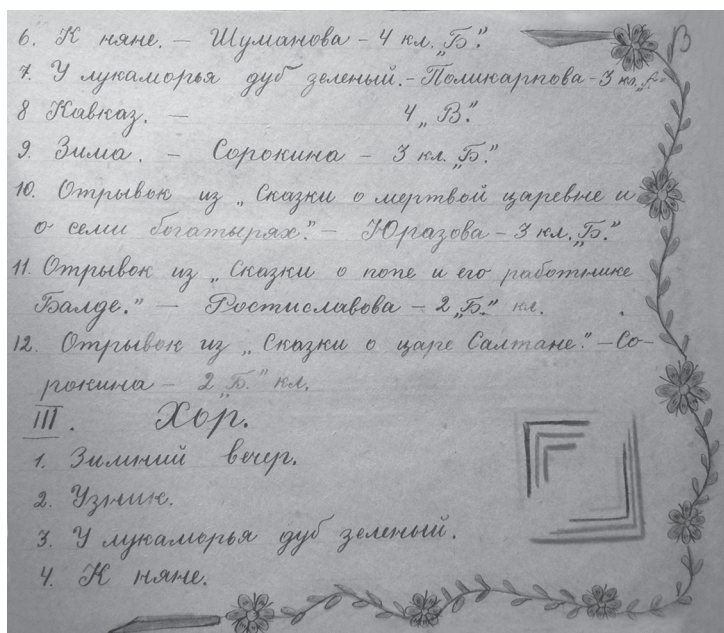 6. К няне. — Шуманова – 4 кл. „Б".
7. У лукаморья дуб зеленый. – Поликарпова – 3 кл.
8 Кавказ. — 4 „В".
9. Зима. – Сорокина – 3 кл. „Б".
10. Отрывок из „Сказки о мертвой царевне и
о семи богатырях". – Юразова – 3 кл. „Б".
11. Отрывок из „Сказки о попе и его работнике
Балде." — Ростиславова – 2 „Б." кл.
12. Отрывок из „Сказки о царе Салтане". – Со-
рокина – 2 „Б." кл.
III. Хор.
1. Зимний вечер.
2. Узник.
3. У лукаморья дуб зеленый.
4. К няне.